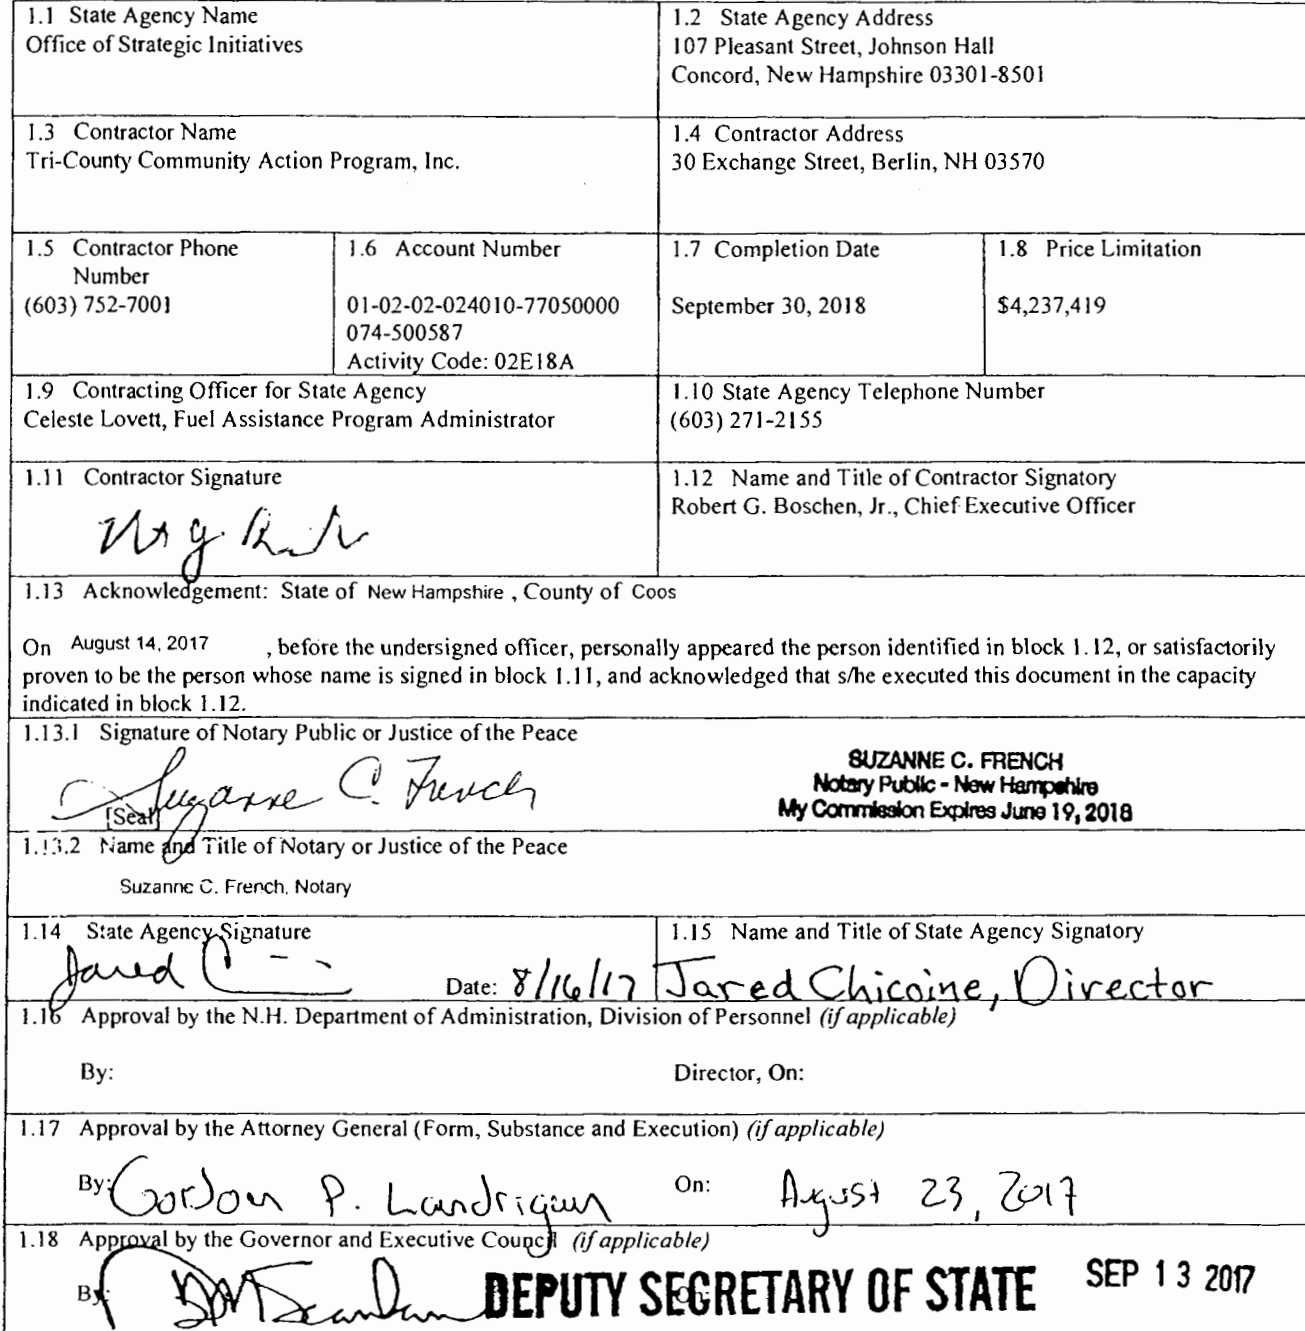 1.1 State Agency Name
Office of Strategic Initiatives
1.2 State Agency Address
107 Pleasant Street, Johnson Hall
Concord, New Hampshire 03301-8501
1.3 Contractor Name
Tri-County Community Action Program, Inc.
1.4 Contractor Address
30 Exchange Street, Berlin, NH 03570
1.5 Contractor Phone
Number
(603) 752-7001
1.6 Account Number
01-02-02-024010-77050000
074-500587
Activity Code: 02E18A
1.7 Completion Date
September 30, 2018
1.8 Price Limitation
$4,237,419
1.9 Contracting Officer for State Agency
Celeste Lovett, Fuel Assistance Program Administrator
1.10 State Agency Telephone Number
(603) 271-2155
1.11 Contractor Signature
1.12 Name and Title of Contractor Signatory
Robert G. Boschen, Jr., Chief Executive Officer
1.13 Acknowledgement: State of New Hampshire , County of Coos
On August 14, 2017 , before the undersigned officer, personally appeared the person identified in block 1.12, or satisfactorily
proven to be the person whose name is signed in block 1.11, and acknowledged that s/he executed this document in the capacity
indicated in block 1.12.
1.13.1 Signature of Notary Public or Justice of the Peace
Suzanne C. French
[Seal]
SUZANNE C. FRENCH
Notary Public - New Hampshire
My Commission Expires June 19, 2018
1.13.2 Name and Title of Notary or Justice of the Peace
Suzanne C. French, Notary
1.14 State Agency Signature
Jared
Date: 8/16/17
1.15 Name and Title of State Agency Signatory
Jared Chicoine, Director
1.16 Approval by the N.H. Department of Administration, Division of Personnel (if applicable)
By: Director, On:
1.17 Approval by the Attorney General (Form, Substance and Execution) (if applicable)
By: Gordon P. Landrigan On: August 23, 2017
1.18 Approval by the Governor and Executive Council (if applicable)
By: DEPUTY SECRETARY OF STATE SEP 13 2017